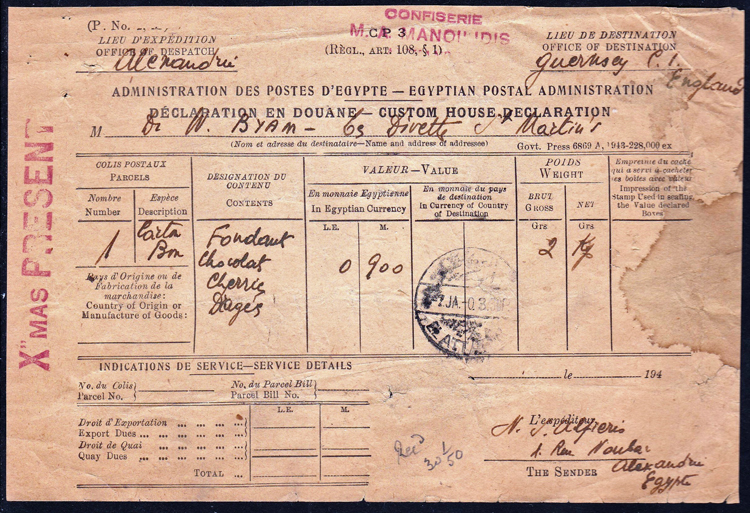 (P. No.
CONFISERIE
M. A. MANOULIDIS
C P 3
(RÈGL., ART: 108, § 1)
LIEU D'EXPÉDITION
OFFICE OF DESPATCH
Alexandrie
LIEU DE DESTINATION
OFFICE OF DESTINATION
Guernsey C.I.
England
ADMINISTRATION DES POSTES D'EGYPTE — EGYPTIAN POSTAL ADMINISTRATION
DÉCLARATION EN DOUANE — CUSTOM HOUSE DECLARATION
M Dr W. BYAM — 63 Divette St Martin's
(Nom et adresse du destinataire—Name and address of addressee)
Govt. Press 6869 A, 1943-228,000 ex
X" MAS PRESENT
COLIS POSTAUX
PARCELS
Nombre
Number
Espèce
Description
DÉSIGNATION DU
CONTENU
CONTENTS
VALEUR—VALUE
En monnaie Egyptienne
In Egyptian Currency
L.E.
M.
En monnaie du pays
de destination
in Currency of Country
of Destination
POIDS
WEIGHT
BRUT
GROSS
NET
Grs
Grs
Empreinte du cachet
qui a servi à cacheter
les boîtes avec valeur:
Impression of the
stamp Used in sealing
the Value declared
Boxes
1
Bon
Fondant
Chocolat
Cherries
0 900
2 Kg
Pays d'Origine ou de
Fabrication de la
marchandise:
Country of Origin or
Manufacture of Goods:
INDICATIONS DE SERVICE—SERVICE DETAILS
No. du Colis
Parcel No.
No. du Parcel Bill
Parcel Bill No.
le 194
L.E.
M.
Droit d'Exportation
Export Dues
Droit de Quai
Quay Dues
TOTAL
30/1/50
L'expéditeur
1. Rue Noubar
Alexandrie
Egypte
THE SENDER